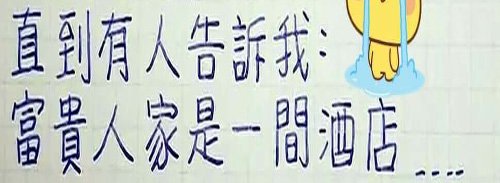 直到有人告訴我：
富貴人家是一間酒店....